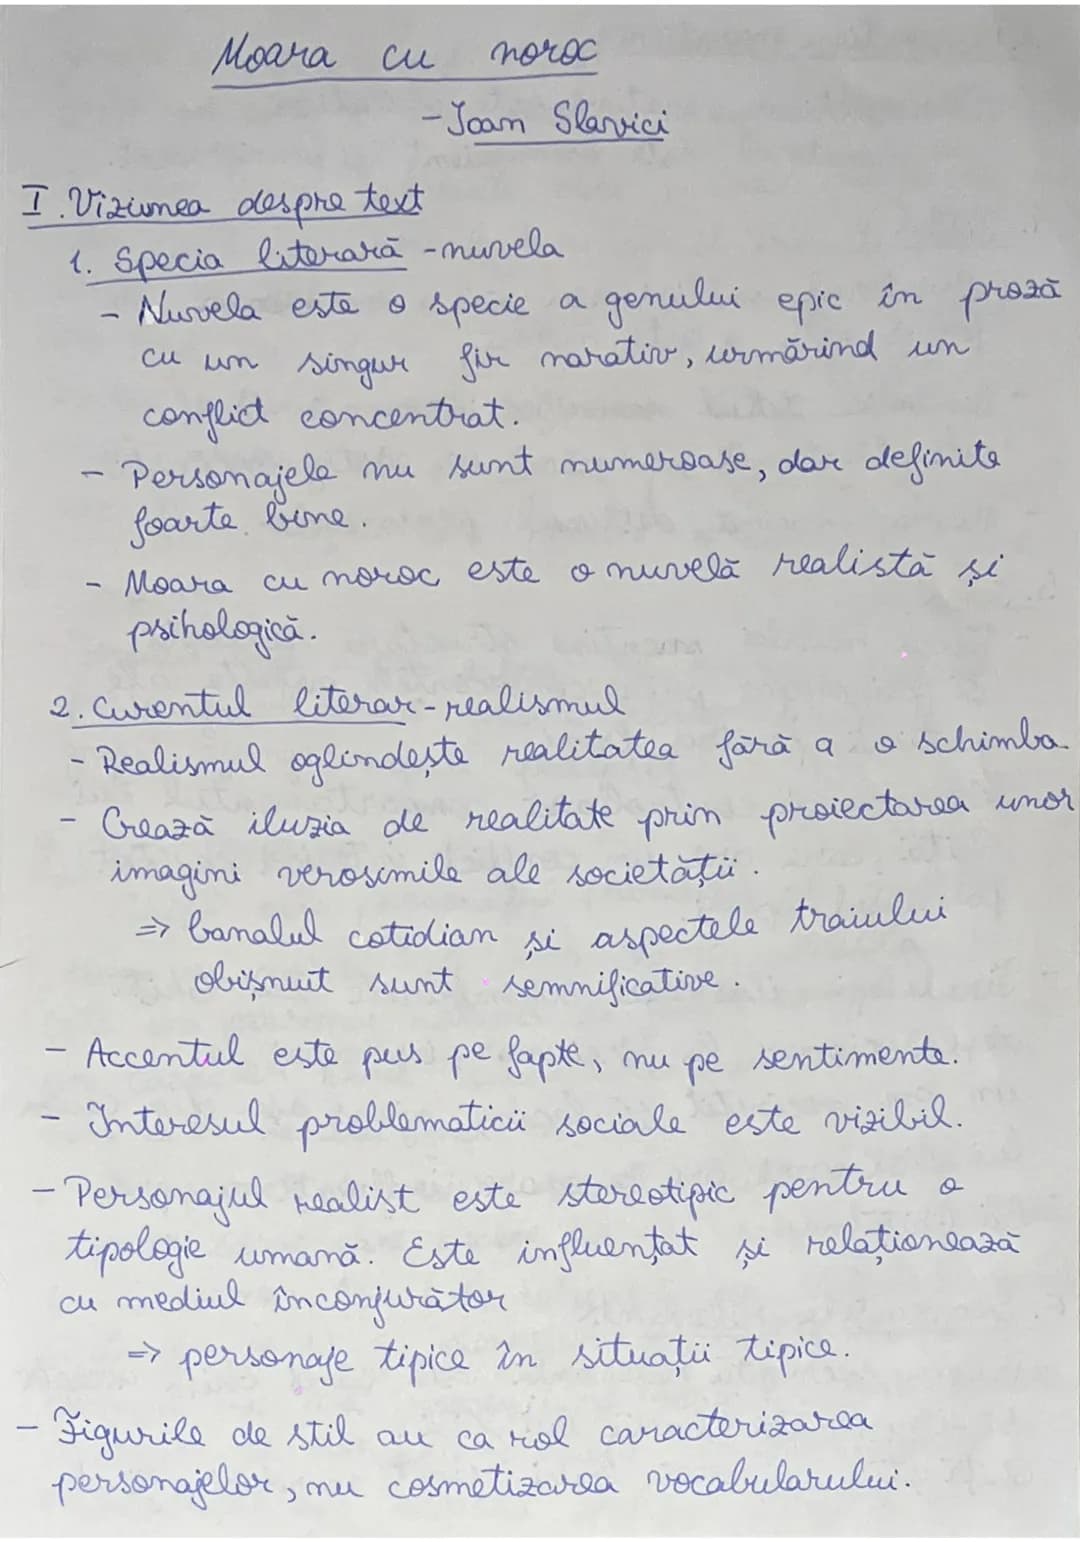 Moara cu noroc
-Ioan Slavici
I. Viziunea despre text
1. Specia literară -nuvela
- Nuvela este o specie a genului epic în proză
cu un singur fir narativ, urmărind un
conflict concentrat.
- Personajele nu sunt numeroase, dar definite
foarte bine.
- Moara cu noroc este o nuvelă realistă și
psihologică.
2. Curentul literar-realismul
- Realismul oglindește realitatea fără a o schimba
- Crează iluzia de realitate prin proiectarea unor
imagini verosimile ale societății.
=> banalul cotidian și aspectele traiului
obișnuit sunt semnificative.
- Accentul este pus pe fapte, nu pe sentimente.
- Interesul problematicii sociale este vizibil.
- Personajul realist este stereotipic pentru o
tipologie umană. Este influențat și relaționează
cu mediul înconjurător
=> personaje tipice în situații tipice.
- Figurile de stil au ca rol caracterizarea
personajelor, nu cosmetizarea vocabularului.